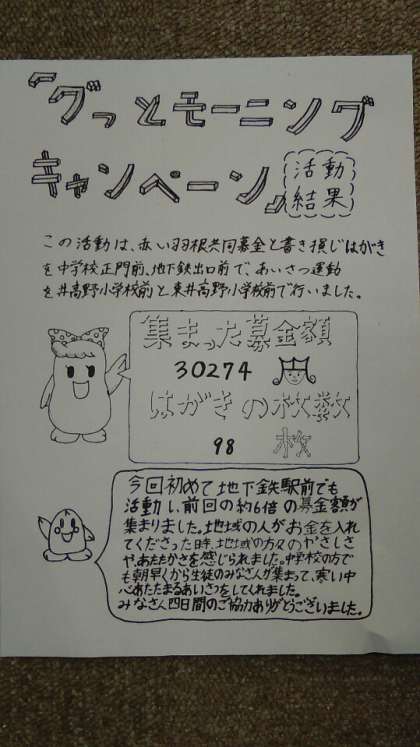 『グっとモーニング
キャンペーン』
活動
結果
この活動は、赤い羽根共同募金と書き損じはがき
を中学校正門前、地下鉄出口前で、あいさつ運動
を井高野小学校前と東井高野小学校前で行いました。
集まった募金額
30274
はがきの枚数
98 枚
今回初めて地下鉄駅前でも
活動し、前回の約6倍の募金額が
集まりました。地域の人がお金を入れ
てくださった時、地域の方々のやさしさ
や、あたたかさを感じられました。中学校の方で
も朝早くから生徒のみなさんが集まって、寒い中
心あたたまるあいさつをしてくれました。
みなさん四日間のご協力ありがとうございました。